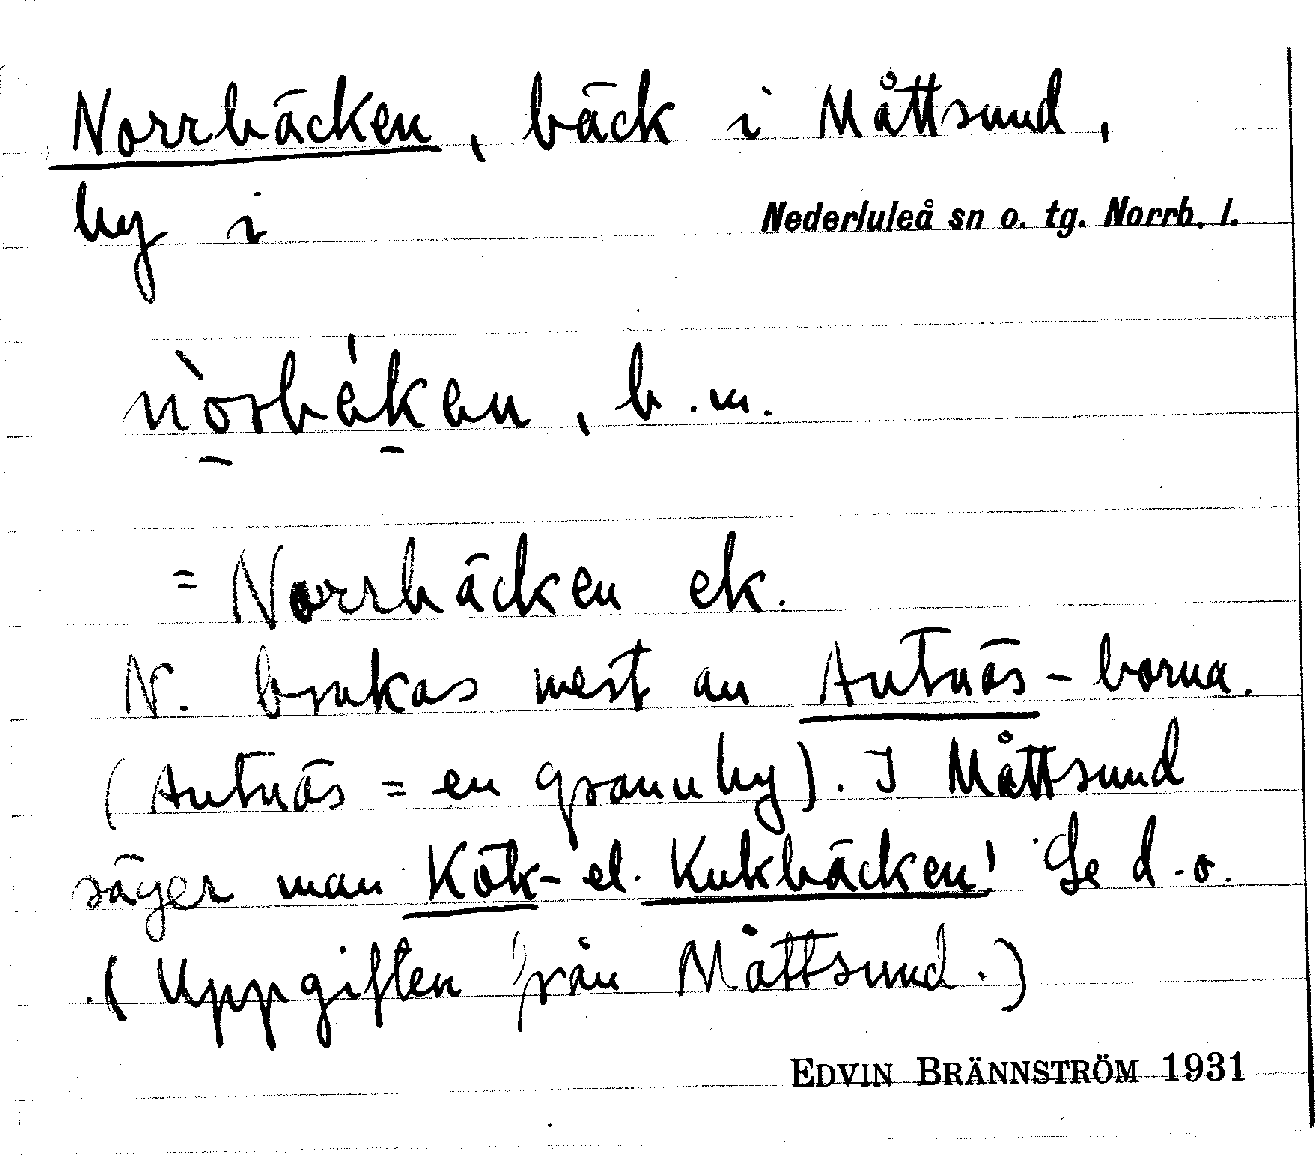 Norrbäcken, bäck i Måttsund,
by i Nederluleå sn o. tg. Norrb. l.
nòrbèken, b. m.
= Norrbäcken ek.
N. brukas mest av Antnäs-borna.
(Antnäs = en grannby). I Måttsund
säger man Kök- el. Kukbäcken! Se d. o.
(Uppgiften från Måttsund.)
EDVIN BRÄNNSTRÖM 1931